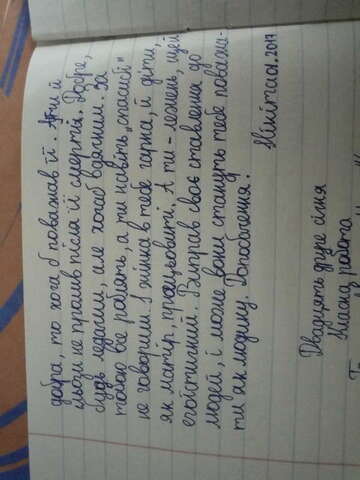 добра, то хоча б поважав її. А ти й
сльози не пролив після її смерті. Добре,
будь ледачим, але хоча б вдячним. За
тобою все роблять, а ти навіть „спасибі"
не говориш. І жінка в тебе гарна, й діти,
як матір, працьовиті. А ти - лежень, ще й
егоїстичний. Виправ своє ставлення до
людей, і може вони стануть тебе поважа-
ти як людину. До побачення!
Двадцять друге січня
Класна робота